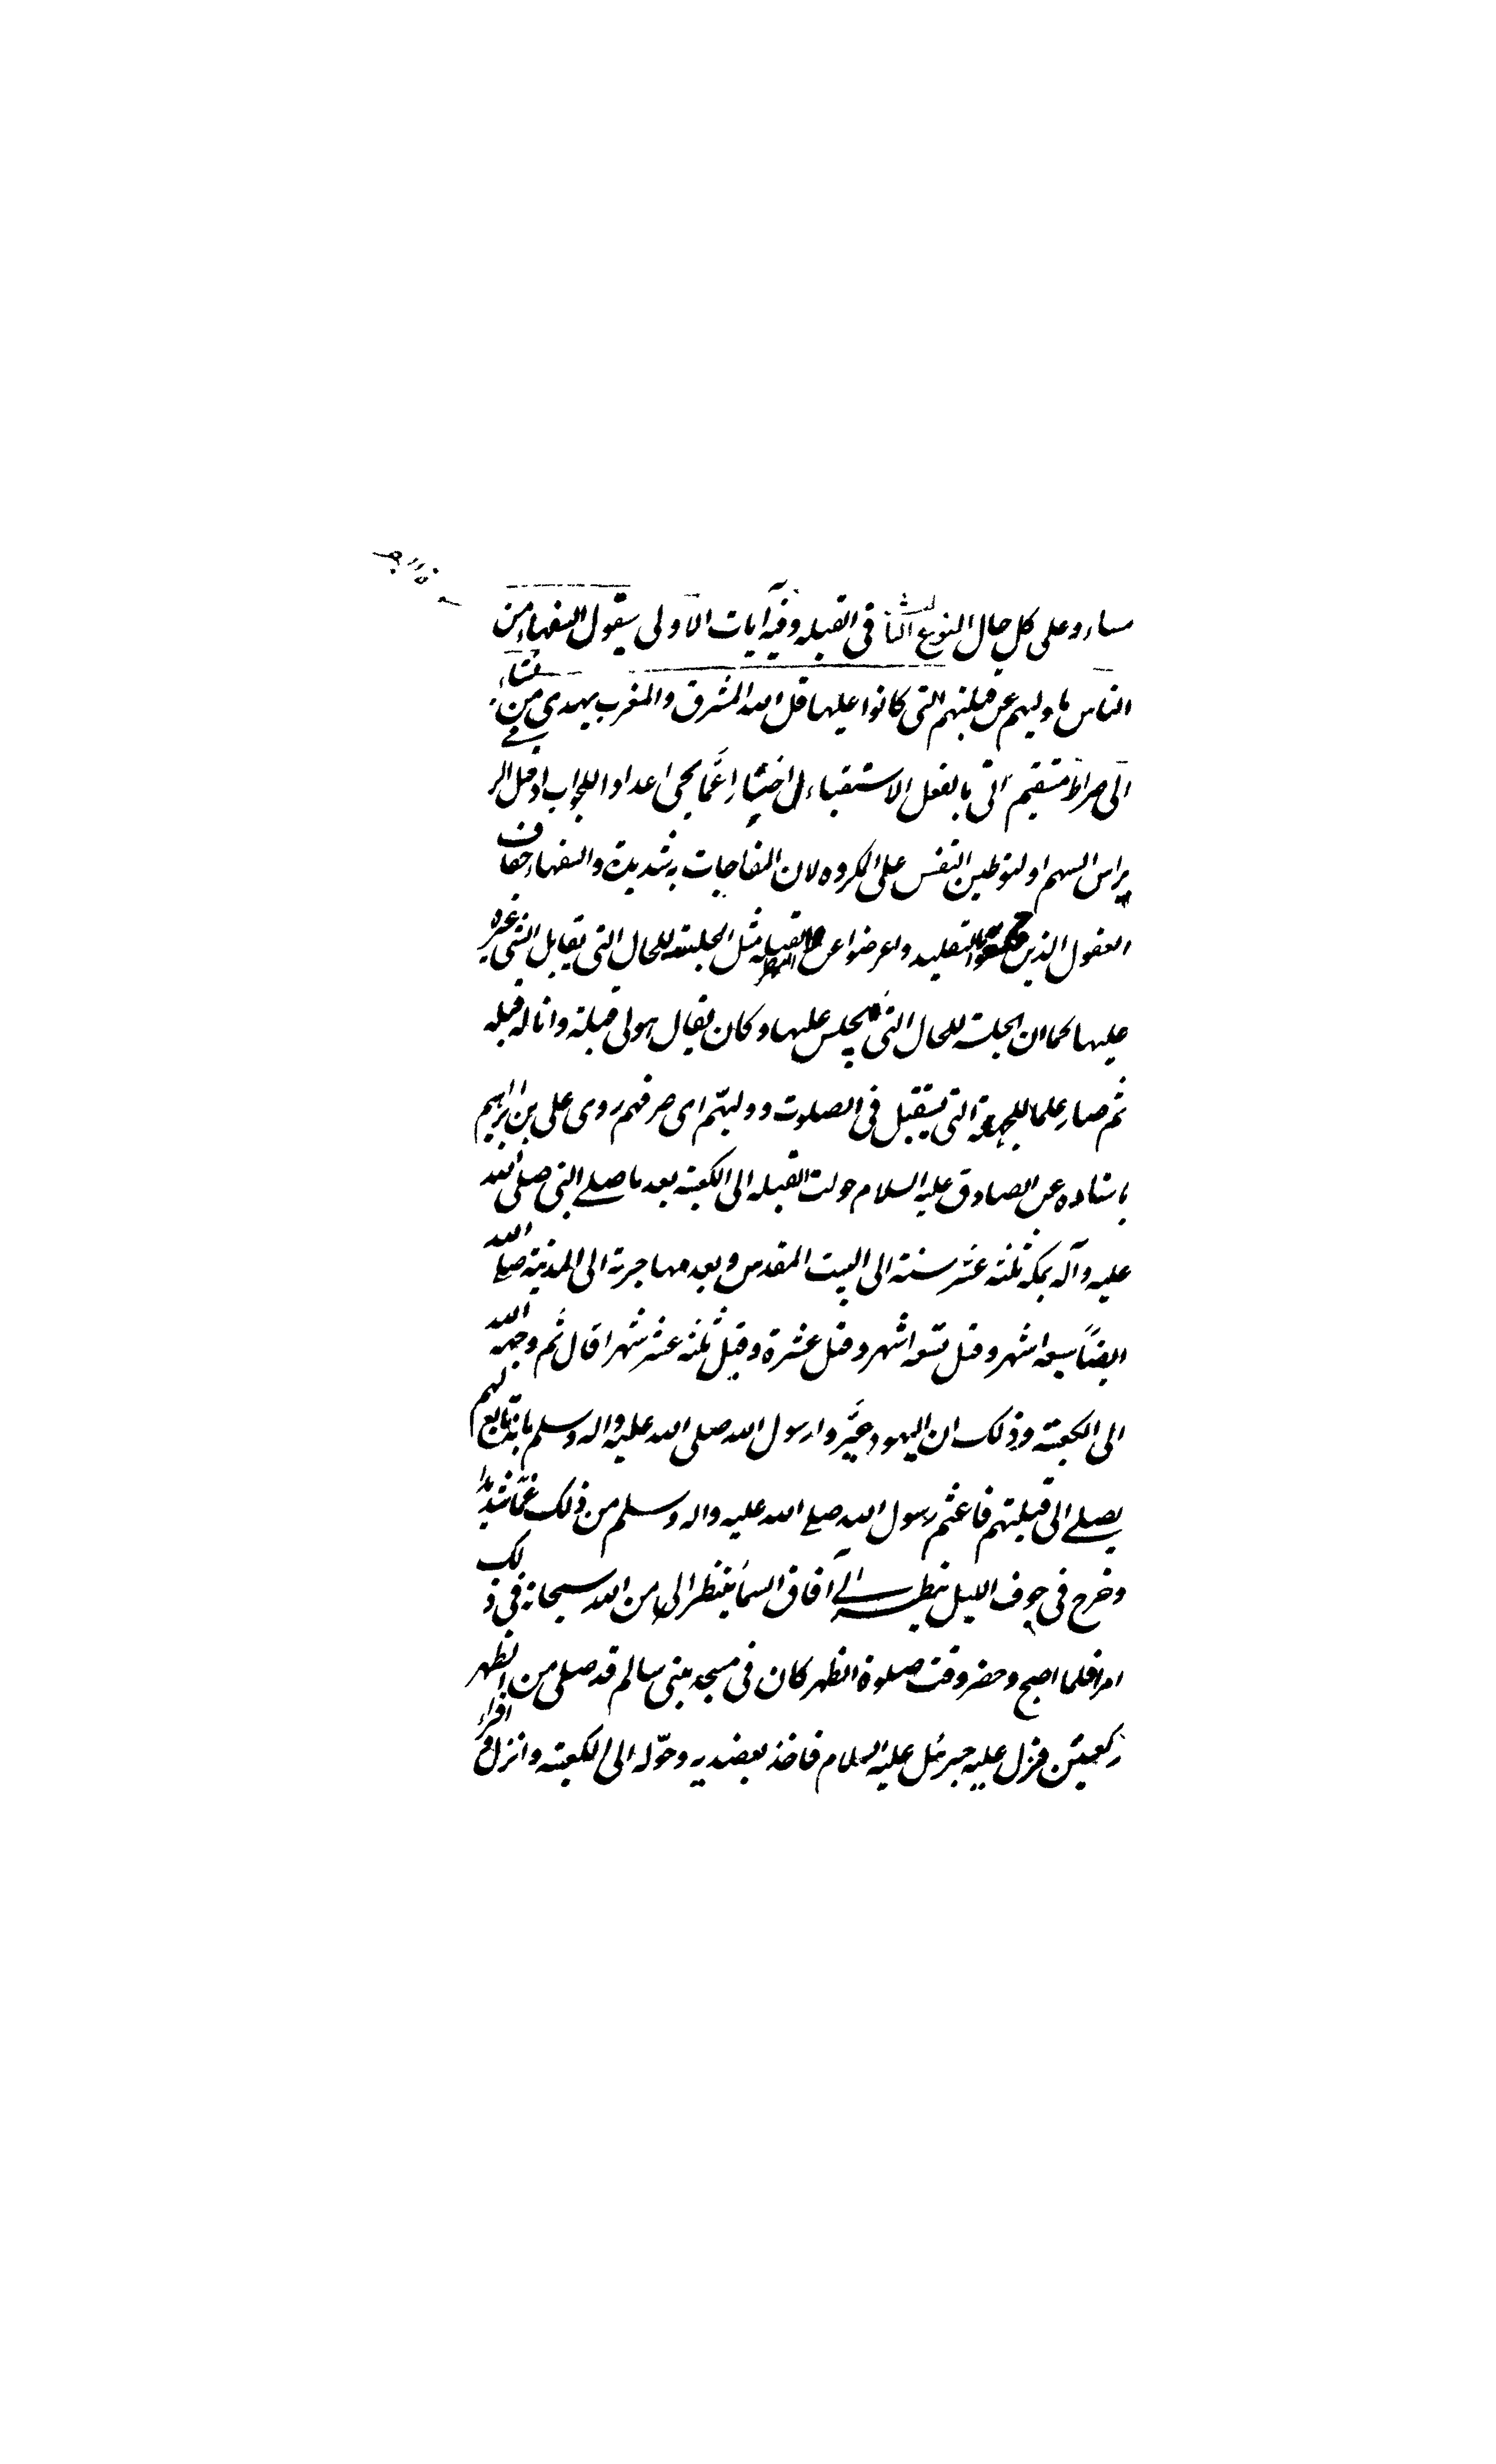 مساء وعلى كل حال النوع الثالث فى القبله وفيه آيات الاولى سيقول السفهاء من
الناس ما وليهم عن قبلتهم التى كانوا عليها قل لله المشرق والمغرب يهدي من يشاء
الى صراط مستقيم اتى بالفعل الاستقباء لى اخبارا عما يجى اعداد اللجواب اذ قبل الرمى
يراس السهم او لتوطين النفس على المكروه لان المفاجات به شديدة والسفهاء خفاف
العقول الذين بالتقليد واعرضوا عن القبله مثل الجلسة للحال التى يقابل الشى غيره
عليها كما ان الجلسة للحال التى يجلس عليها وكان يقال هولى قبلة وانا له قبله
ثم صار علما للجهة التى يستقبل فى الصلوت ووليهم اى صرفهم روى على بن ابراهيم
باسناده عن الصادق عليه السلام حولت القبله الى الكعبة بعد ما صلى النبى صلى الله
عليه وآله بمكه ثلثة عشر سنة الى البيت المقدس وبعد مهاجرته الى المدينة صلى الله
ايضاً سبعه اشهر وقيل تسعه اشهر وقيل عشرة وقيل ثلثه عشر شهرا قال ثم وجهه الله
الى الكعبة وذلك ان اليهود عيّروا رسول الله صلى الله عليه واله وسلم بانه تابع لهم
يصلى الى قبلتهم فاغتم رسول الله صلى الله عليه واله وسلم من ذلك غما شديدا
وخرج فى جوف الليل ينظر الى آفاق السماء ينتظر الى من الله سبحانه فى ذلك
امرا فلما اصبح وحضر وقت صلوة الظهر كان فى مسجد بنى سالم قد صلى من الظهر
ركعتين فنزل عليه جبرئل عليه السلام فاخذ بعضديه وحوّله الى الكعبة وانزل